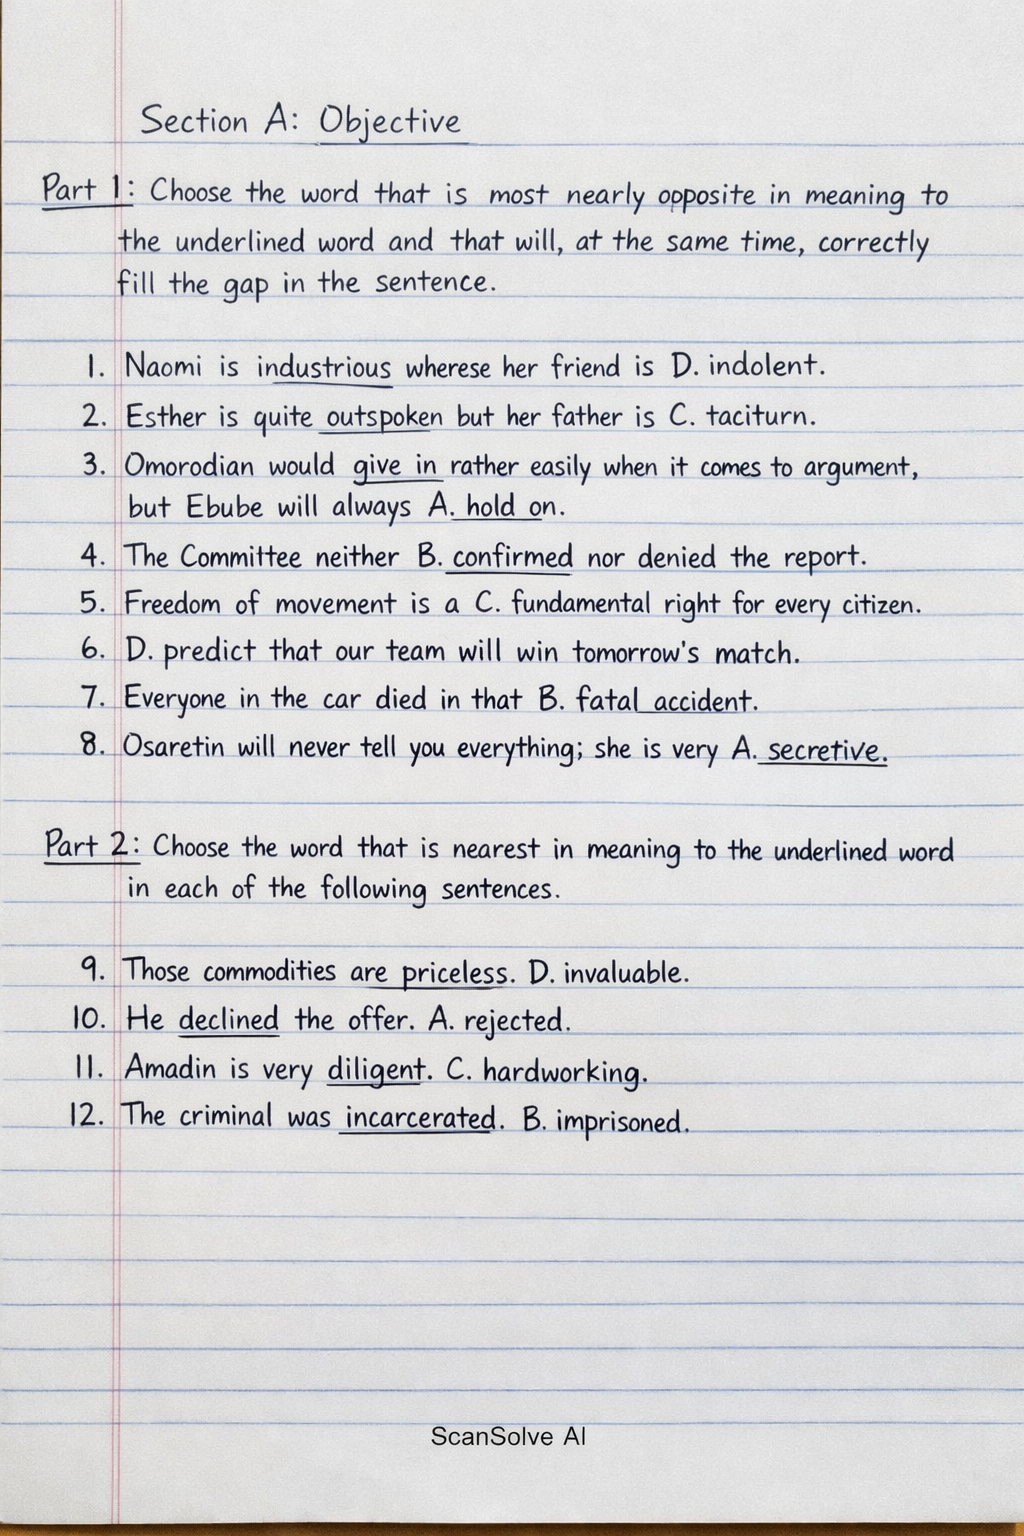 Section A: Objective
Part 1: Choose the word that is most nearly opposite in meaning to
the underlined word and that will, at the same time, correctly
fill the gap in the sentence.
1. Naomi is industrious wherese her friend is D. indolent.
2. Esther is quite outspoken but her father is C. taciturn.
3. Omorodian would give in rather easily when it comes to argument,
but Ebube will always A. hold on.
4. The Committee neither B. confirmed nor denied the report.
5. Freedom of movement is a C. fundamental right for every citizen.
6. D. predict that our team will win tomorrow's match.
7. Everyone in the car died in that B. fatal accident.
8. Osaretin will never tell you everything; she is very A. secretive.
Part 2: Choose the word that is nearest in meaning to the underlined word
in each of the following sentences.
9. Those commodities are priceless. D. invaluable.
10. He declined the offer. A. rejected.
11. Amadin is very diligent. C. hardworking.
12. The criminal was incarcerated. B. imprisoned.
ScanSolve AI